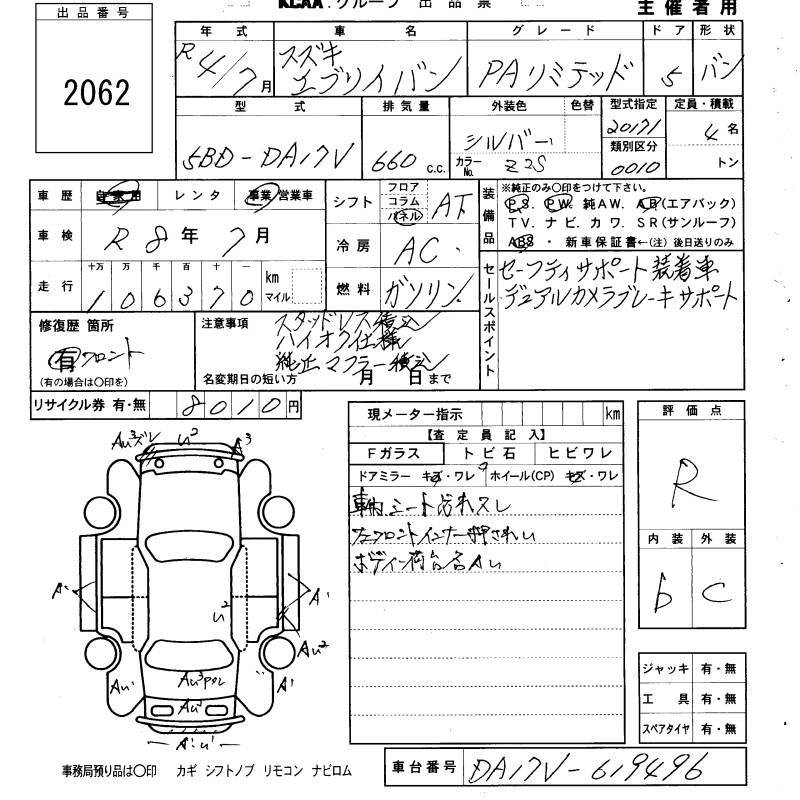 出品番号
2062
KCAA.グループ 出品票
主催者用
年式 車名 グレード ドア 形状
R4/7月 スズキ エブリイバン PAリミテッド 5 バン
型式 排気量 外装色 色替 型式指定 定員・積載
5BD-DA17V 660 c.c. シルバー 20171 4名
カラーNo. Z2S 類別区分 0010 トン
車歴 自家用 レンタ 事業 営業車
車検 R8年7月
走行 十万 万 千 百 十 一
106370 km マイル
シフト フロア コラム パネル AT
冷房 AC
燃料 ガソリン
装備品 ※純正のみ○印をつけて下さい。
P.S. P.W. 純AW. A.B(エアバック)
TV. ナビ. カワ. SR(サンルーフ)
ABS ・ 新車保証書←(注) 後日送りのみ
セールスポイント
セーフティサポート装着車
デュアルカメラブレーキサポート
修復歴 箇所
有 フロント
(有の場合は○印を)
注意事項
スタッドレス積込
ハイオク仕様
純正マフラー積込
名変期日の短い方 月 日まで
リサイクル券 有・無 8010円
現メーター指示 km
【査定員記入】
Fガラス トビ石 ヒビワレ
ドアミラー キズ・ワレ ホイール(CP) キズ・ワレ
車内.シート汚れスレ
フロントインナー押されU
ボディー荷台名AU
評価点
R
内装 外装
b C
ジャッキ 有・無
工具 有・無
スペアタイヤ 有・無
AU3ズレ U2 A3
A1 A1
U2
AU2
AU1 AU3 A1
AU2
A1U1
事務局預り品は○印 カギ シフトノブ リモコン ナビロム
車台番号 DA17V-619496